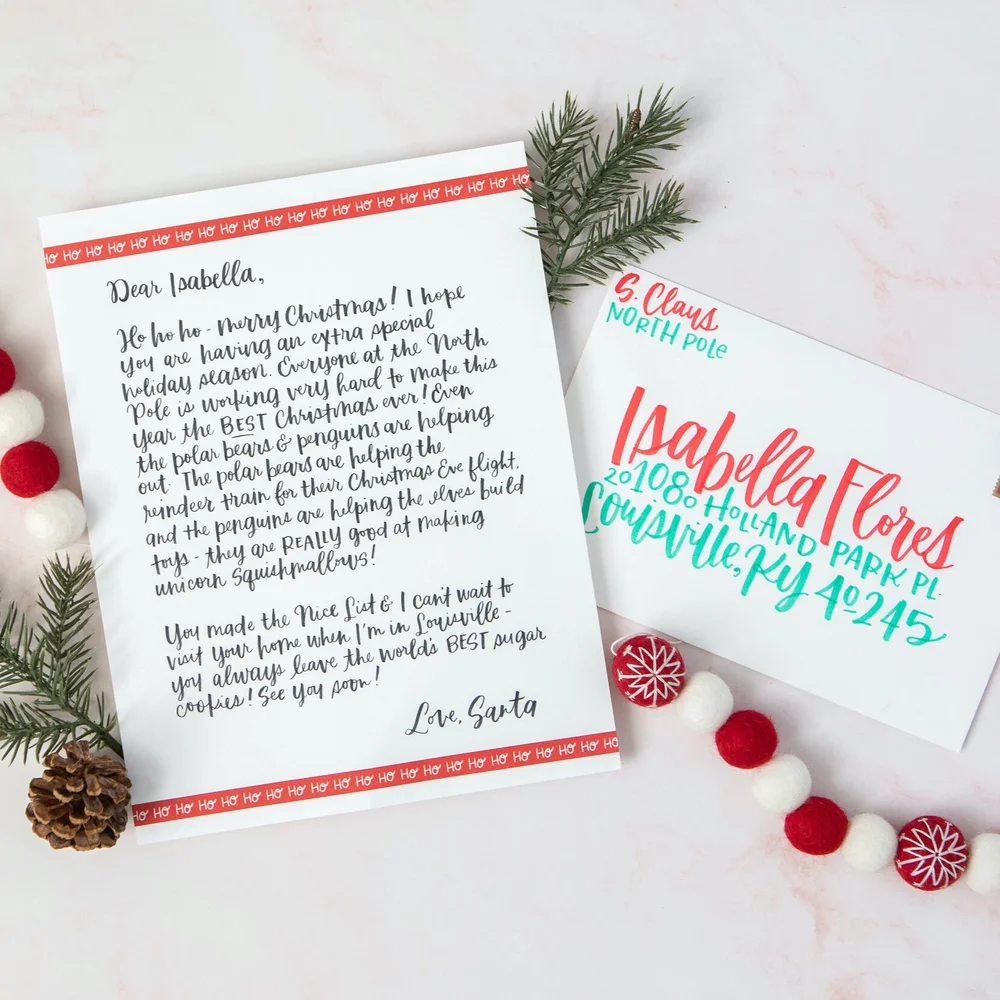 HO HO HO HO HO HO HO HO HO HO HO HO HO HO HO HO HO HO HO HO
Dear Isabella,
Ho ho ho - Merry Christmas! I hope
you are having an extra special
holiday season. Everyone at the North
Pole is working very hard to make this
year the BEST Christmas ever! Even
the polar bears & penguins are helping
out. The polar bears are helping the
reindeer train for their Christmas Eve flight,
and the penguins are helping the elves build
toys - they are REALLY good at making
unicorn Squishmallows!
You made the Nice List & I can't wait to
visit your home when I'm in Louisville -
you always leave the world's BEST sugar
cookies! See you soon!
Love, Santa
HO HO HO HO HO HO HO HO HO HO HO HO HO HO HO HO HO HO HO HO
S. Claus
NORTH Pole
Isabella Flores
201080 HOLLAND PARK PL.
Louisville, KY 40245